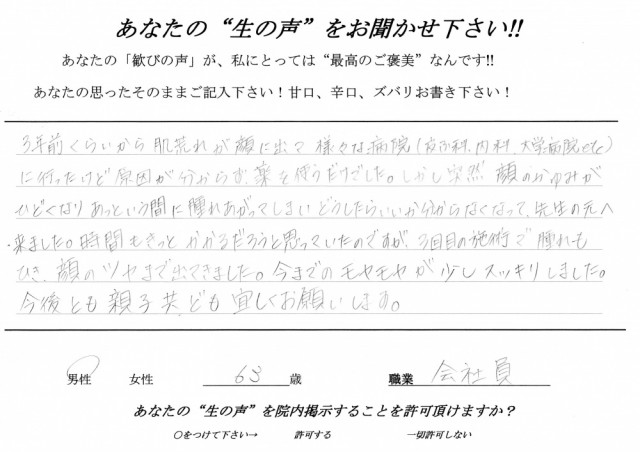 あなたの“生の声”をお聞かせ下さい!!
あなたの「歓びの声」が、私にとっては“最高のご褒美”なんです!!
あなたの思ったそのままご記入下さい！甘口、辛口、ズバリお書き下さい！
3年前くらいから肌荒れが顔に出て様々な病院（皮ふ科、内科、大学病院etc）
に行ったけど原因が分からず、薬を使うだけでした。しかし突然顔のかゆみが
ひどくなりあっという間に腫れあがってしまいどうしたらいいか分からなくなって、先生の元へ
来ました。時間もきっとかかるだろうと思っていたのですが、3回目の施術で腫れも
ひき、顔のツヤまで出てきました。今までのモヤモヤが少しスッキリしました。
今後とも親子共ども宜しくお願いします。
男性 女性 63 歳 職業 会社員
あなたの“生の声”を院内掲示することを許可頂けますか？
〇をつけて下さい→ 許可する 一切許可しない